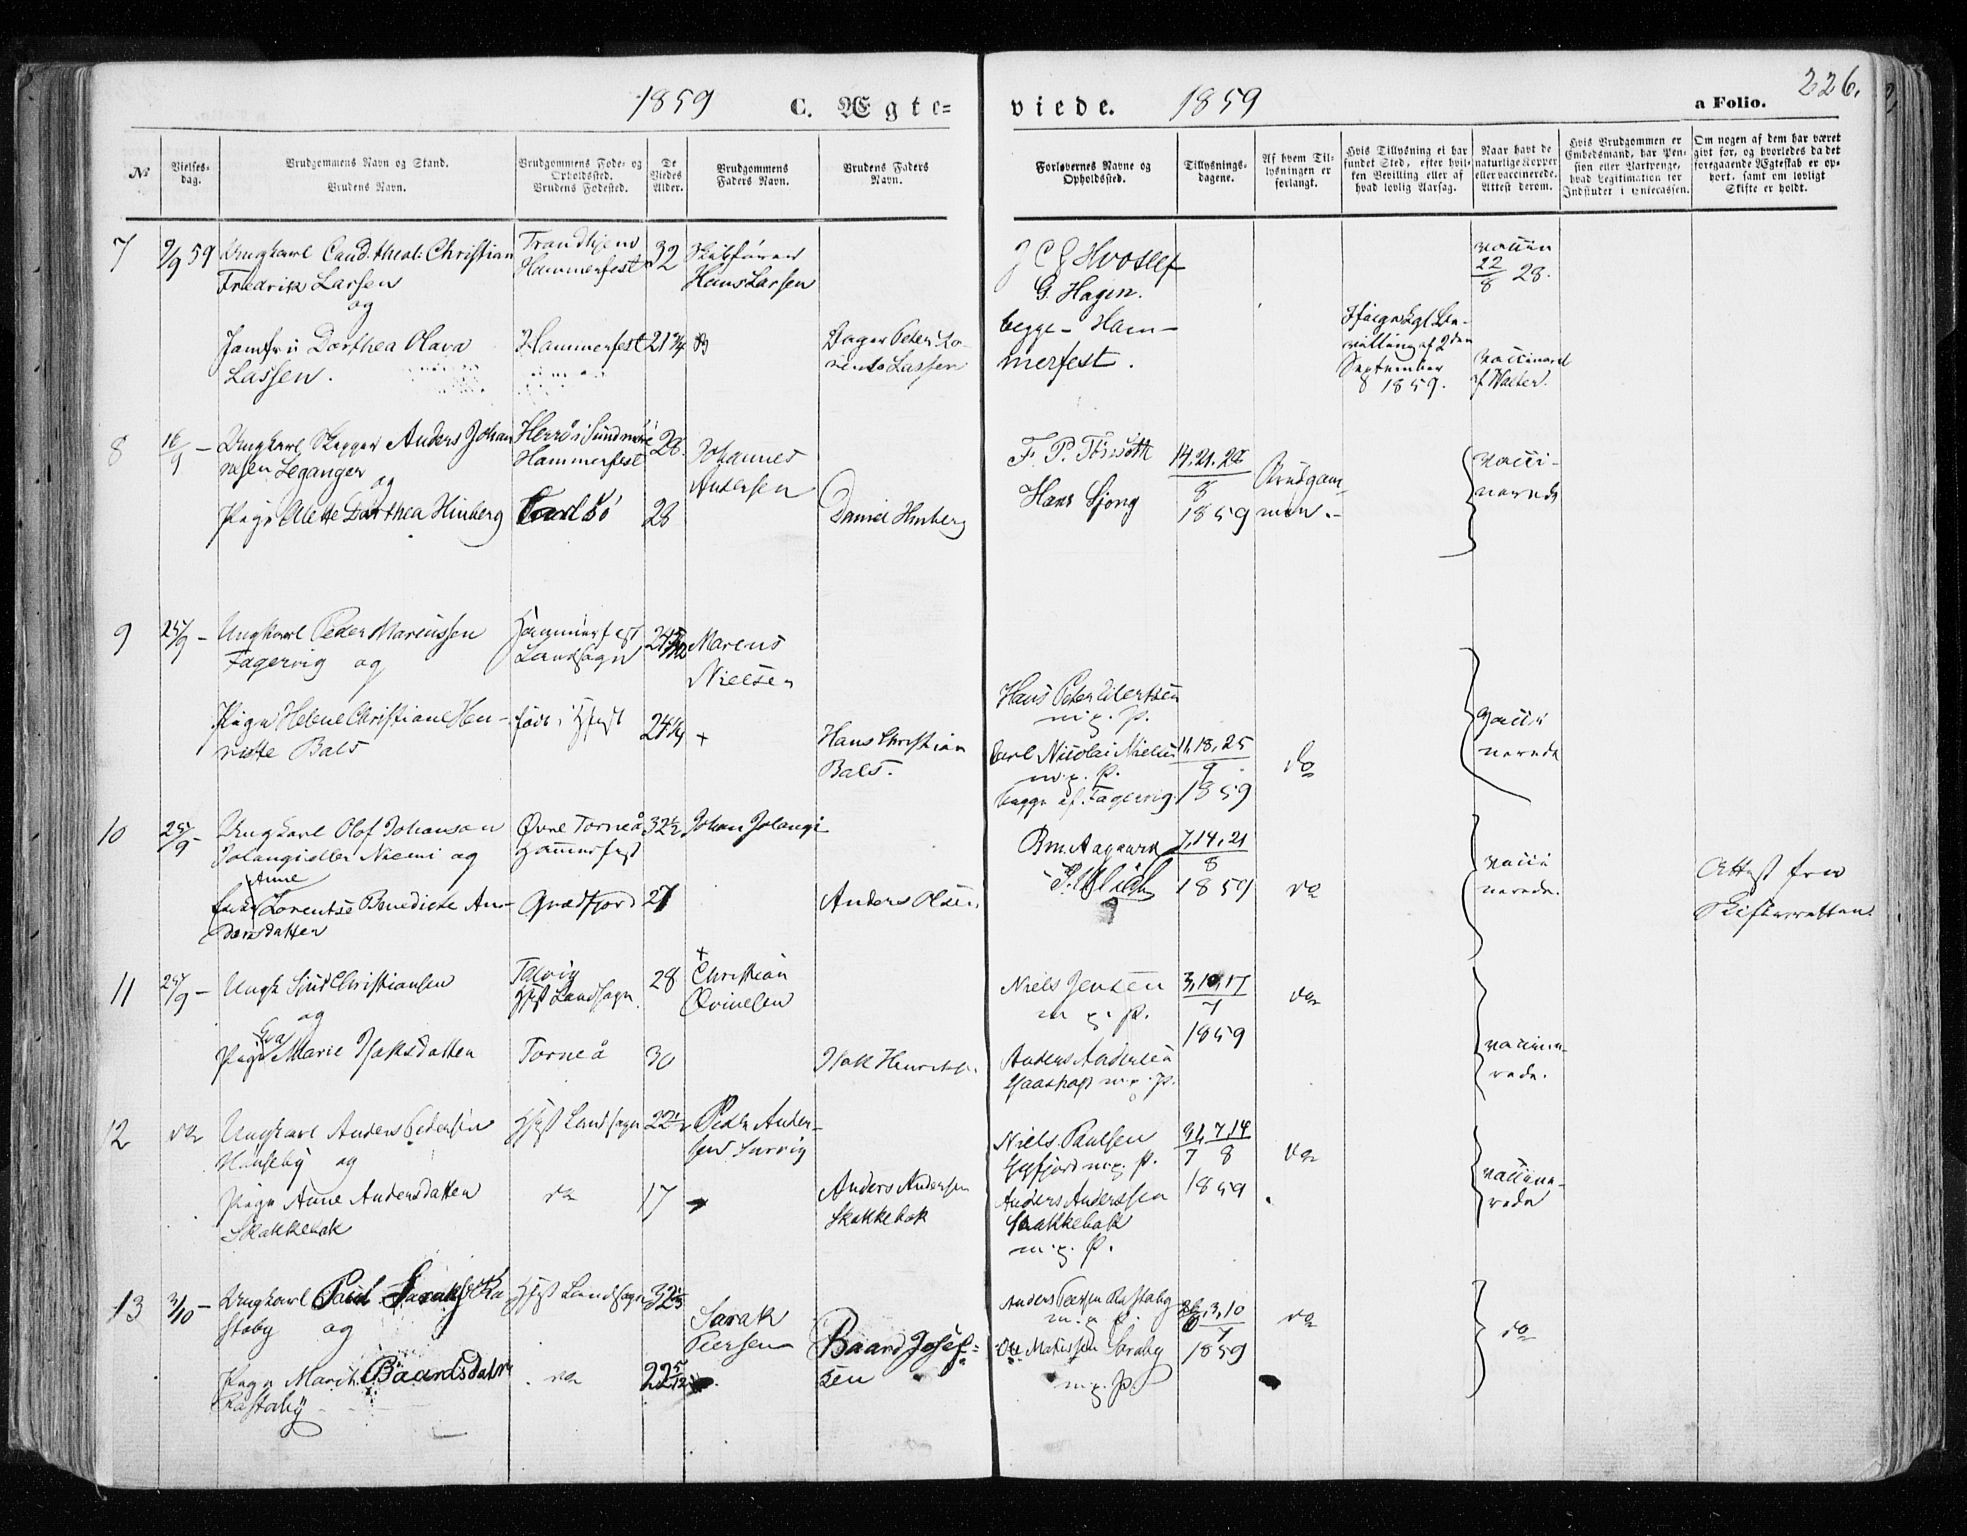 1859 C. Ægte= viede. 1859 a Folio. 226.
No
Vielses-
dag.
Brudgommens Navn og Stand.
Brudens Navn.
Brudgommens Føde- og
Opholdssted.
Brudens Fødested.
De
Viedes
Alder.
Brudgommens
Faders Navn.
Brudens Faders
Navn.
Forlovernes Navne og
Opholdssted.
Tillysnings-
dagene.
Af hvem Til-
lysningen er
forlangt.
Hvis Tillysning ei har
fundet Sted, efter hvil-
ken Bevilling eller af
hvad lovlig Aarsag.
Naar havt de
naturlige Kopper
eller vaccinerede.
Attest derom.
Hvis Brudgommen er
Embedsmand, har Pen-
sion eller Vartpenge,
hvad Legitimation for
Indskudet i Enkecassen.
Om nogen af dem har været
gift før, og hvorledes da det
foregaaende Ægteskab er op-
hørt, samt om lovligt
Skifte er holdt.
7 9/9 59 Ungkarl Cand. theol. Christian
Fredrik Larsen
og
Jomfru Dorthea Olava
Lassen.
Trondhjem
Hammerfest
Hammerfest
32
21 3/4
Skibsfører
Hans Larsen
Peter Lo-
rents Lassen
J C G Hvoslef
G. Hagen.
begge - Ham-
merfest.
Ifølge Kgl. Be-
villing af 2den
September
1859.
vaccin
22/8 28.
Vaccineret
af Walter.
8 18/9 - Ungkarl Skipper Anders Johan-
nesen Leganger
og
Pige Alette Dorthea Hinberg
Herrø i Søndmøre
Hammerfest
Carlsø
28.
28
Johannes
Andersen
Daniel Hinberg
F. P.
Hans Bjong
14. 21. 28
8
1859
Brudgom-
men.-
vacci-
nerede
9 25/9 - Ungkarl Peder Marcussen
Fagervig og
Pige Helene Christiane Hen-
riette Bals
Hammerfest
Landsogn
født i Hfest
24
24 1/4
+
Marcus
Nielsen
Hans Christian
Bals.
Hans Peter Eilertsen
m. p. P.
Carl Nicolai Nielsen
m. p. P.
begge af Fagervig
11, 18, 25
9
1859
do
vacci
nerede
10 25/9 - Ungkarl Olof Johanson
Jolangi eller Niemi og
Anne
Lorentse Benedicte An-
dersdatter
Øvre Torneå
Hammerfest
Qvædfjord
32 1/2
27
Johan Jolangi
Anders Olsen
Bm. Aagaard
7, 14, 21
8
1859
do
vacci
nerede.
Attest fra
Skifteretten.
11 25/9 - Ungk Siver Christiansen
og
Eva
Pige Marie Isaksdatter
Talvig
Hfest Landsogn.
Torneå
28
30
+
Christian
Qvinelen
Isak Henriks.
Niels Jensen
m. p. P.
Anders Andersen
m. p. P.
3, 10, 17
7
1859
do
vaccine-
rede.
12 do Ungkarl Anders Pedersen
og
Pige Anne Andersdatter
Skakkebak
Hfest Landsogn
do
22 1/2
17
Peder Ander-
sen Sarvig
Anders Andersen
Skakkebak
Niels Paulsen
m. p. P.
Anders Anderssen
Skakkebak
m. p. P.
31, 7, 14
7 8
1859
do
vaccine-
rede
13 3/10 - Ungkarl Paul Sarakses Ra
staby og
Pige Marit Baardsdatter
Rastaby
Hfest Landsogn
do
32 1/3
22 5/12
Sarak
Peersen
Baard Josef=
sen
Anders Peersen Rastaby
m. p. P.
Ole Matissen Saraby
m. p. P.
26, 3, 10
7
1859
do
do